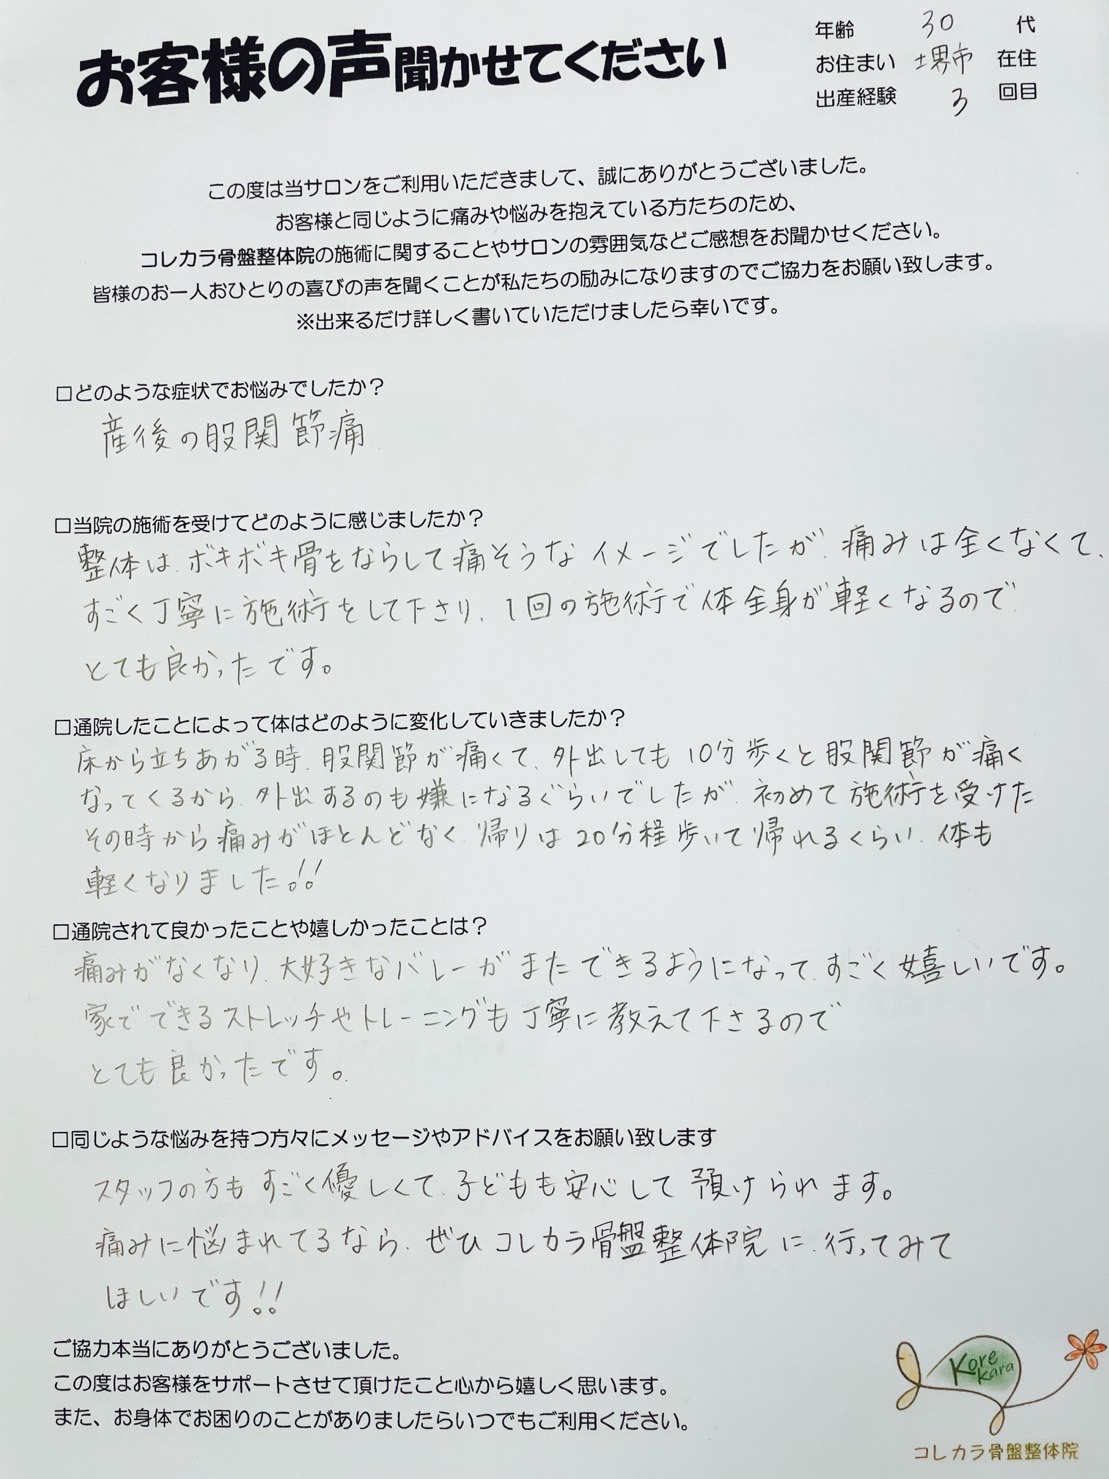 お客様の声聞かせてください
年齢 30 代
お住まい 堺市 在住
出産経験 3 回目
この度は当サロンをご利用いただきまして、誠にありがとうございました。
お客様と同じように痛みや悩みを抱えている方たちのため、
コレカラ骨盤整体院の施術に関することやサロンの雰囲気などご感想をお聞かせください。
皆様のお一人おひとりの喜びの声を聞くことが私たちの励みになりますのでご協力をお願い致します。
※出来るだけ詳しく書いていただけましたら幸いです。
□どのような症状でお悩みでしたか？
産後の股関節痛
□当院の施術を受けてどのように感じましたか？
整体は、ボキボキ骨をならして痛そうなイメージでしたが、痛みは全くなくて、
すごく丁寧に施術をして下さり、1回の施術で体全身が軽くなるので
とても良かったです。
□通院したことによって体はどのように変化していきましたか？
床から立ちあがる時、股関節が痛くて、外出しても10分歩くと股関節が痛く
なってくるから、外出するのも嫌になるぐらいでしたが、初めて施術を受けた
その時から痛みがほとんどなく、帰りは20分程歩いて帰れるくらい、体も
軽くなりました!!
□通院されて良かったことや嬉しかったことは？
痛みがなくなり、大好きなバレーがまたできるようになって、すごく嬉しいです。
家でできるストレッチやトレーニングも丁寧に教えて下さるので
とても良かったです。
□同じような悩みを持つ方々にメッセージやアドバイスをお願い致します
スタッフの方もすごく優しくて、子どもも安心して預けられます。
痛みに悩まれてるなら、ぜひコレカラ骨盤整体院に、行ってみて
ほしいです!!
ご協力本当にありがとうございました。
この度はお客様をサポートさせて頂けたこと心から嬉しく思います。
また、お身体でお困りのことがありましたらいつでもご利用ください。
Kore
Kara
コレカラ骨盤整体院